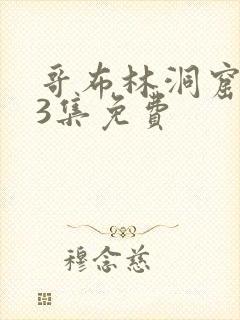 哥布林洞窟
3集免费
穆念慈